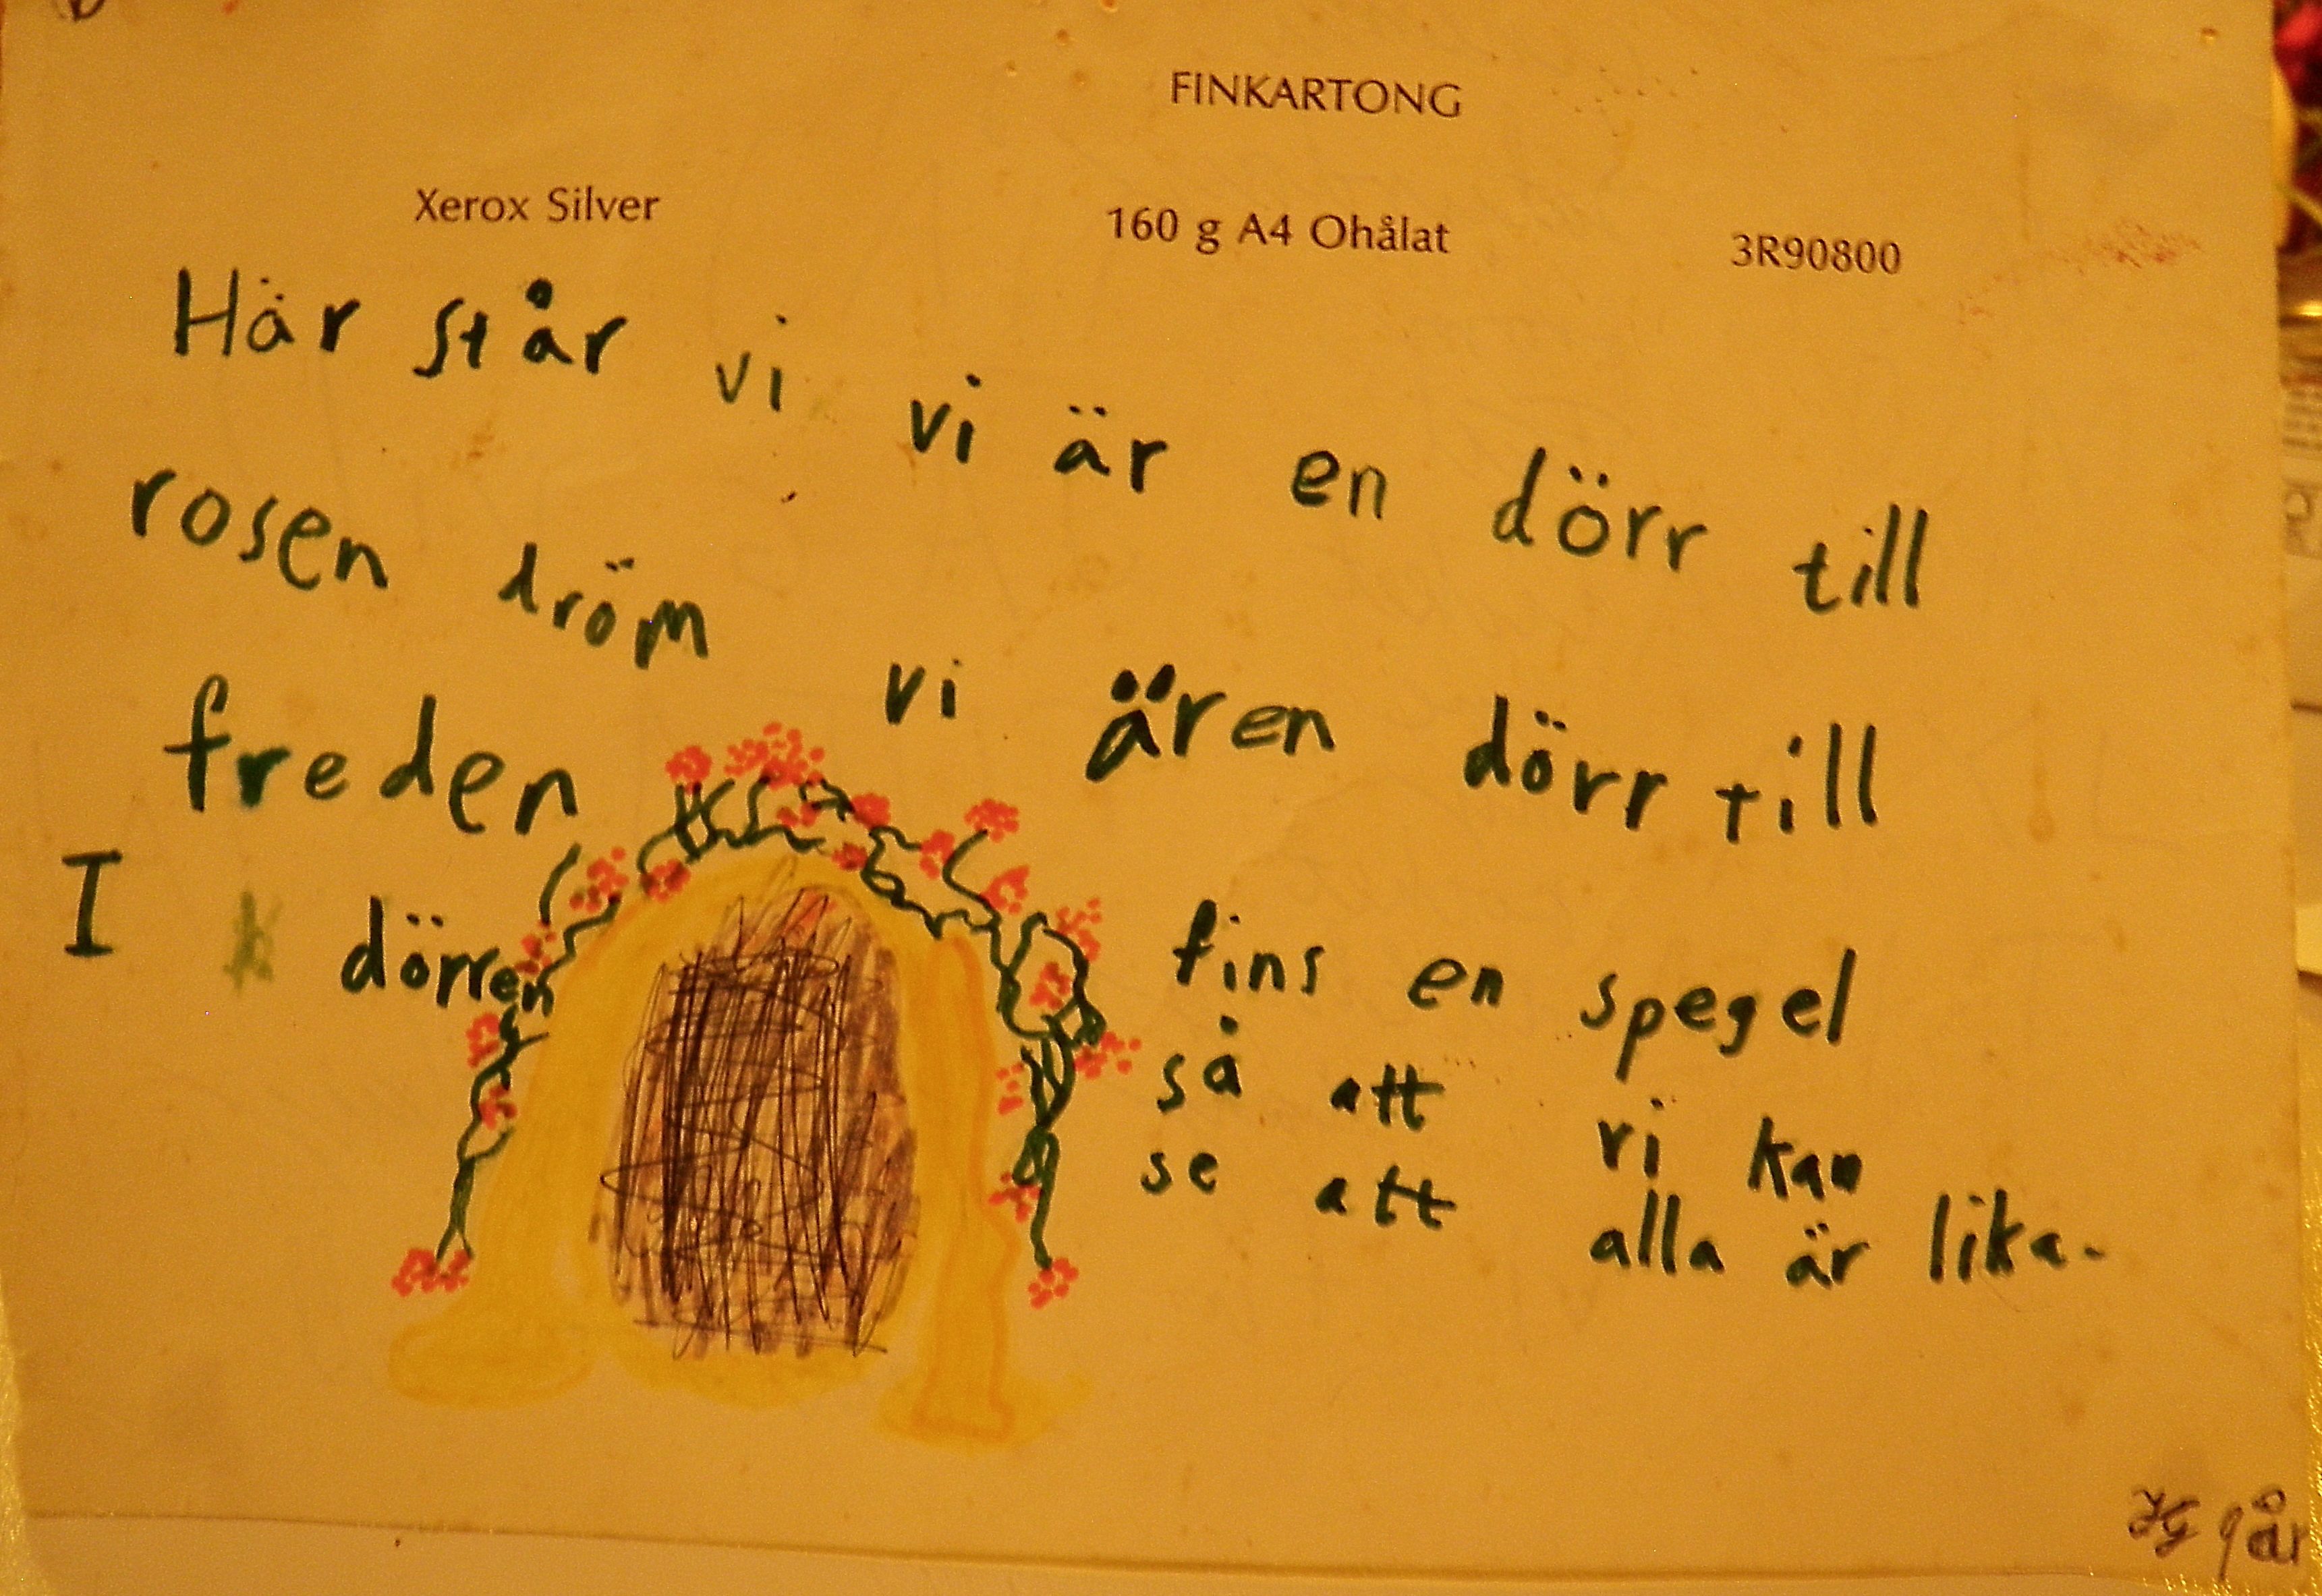 FINKARTONG
Xerox Silver 160 g A4 Ohålat 3R90800
Här står vi vi är en dörr till
rosen dröm vi ären dörr till
freden
I dörren fins en spegel
så att vi kan
se att alla är lika.
9 år